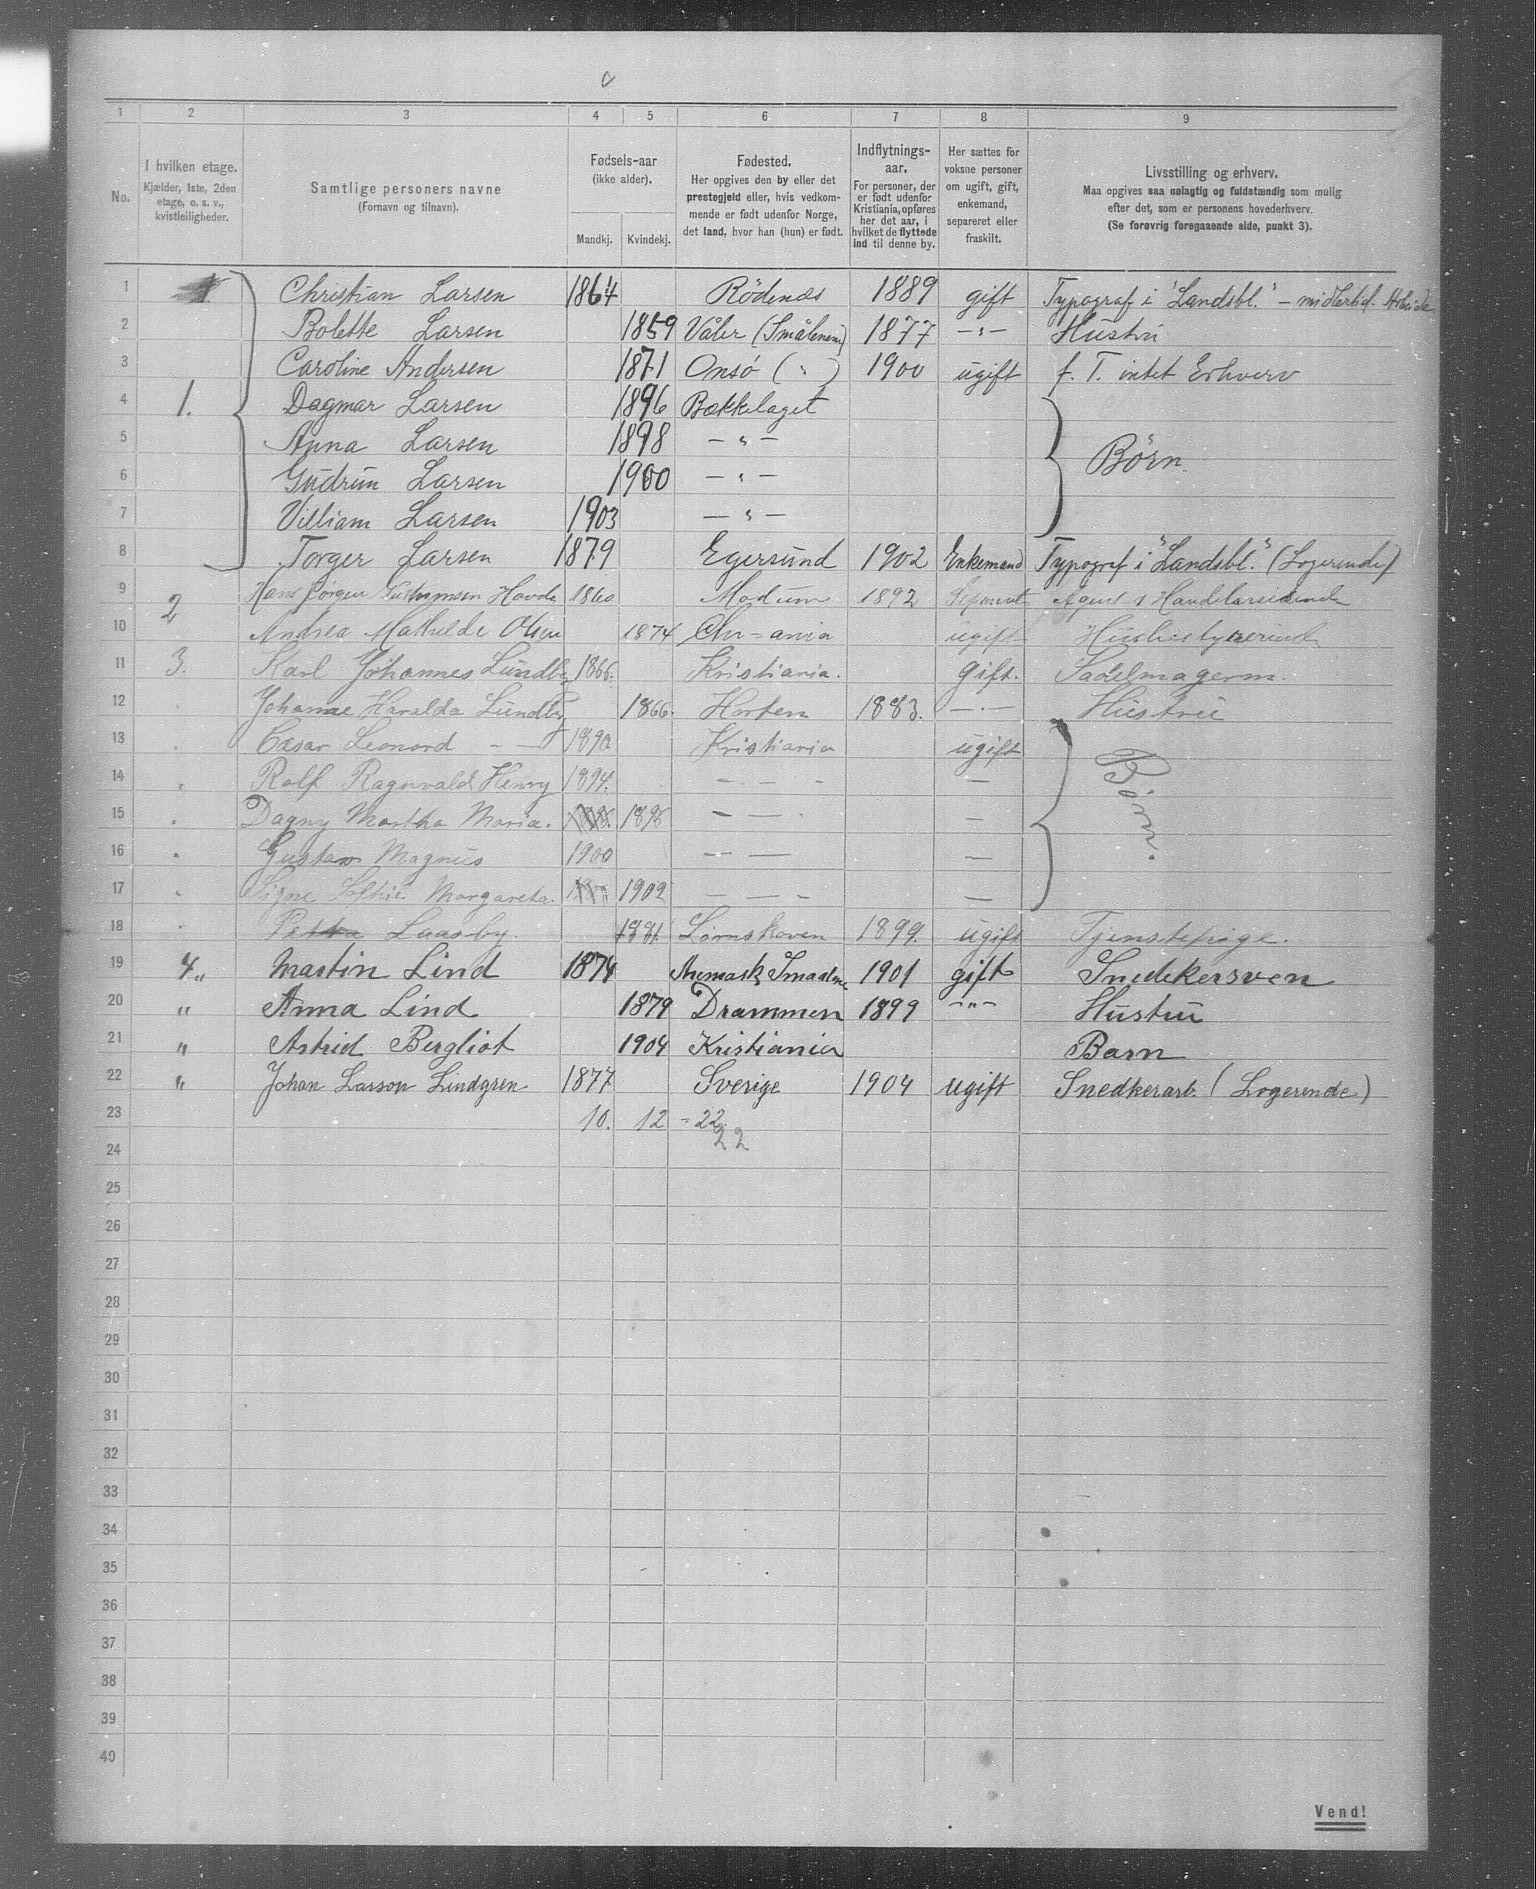 1 2 3 4 5 6 7 8 9
No.
I hvilken etage.
Kjælder, 1ste, 2den
etage, o. s. v.,
kvistleiligheder.
Samtlige personers navne
(Fornavn og tilnavn).
Fødsels-aar
(ikke alder).
Mandkj. Kvindekj.
Fødested.
Her opgives den by eller det
prestegjeld eller, hvis vedkom-
mende er født udenfor Norge,
det land, hvor han (hun) er født.
Indflytnings-
aar.
For personer, der
er født udenfor
Kristiania, opføres
her det aar, i
hvilket de flyttede
ind til denne by.
Her sættes for
voksne personer
om ugift, gift,
enkemand,
separeret eller
fraskilt.
Livsstilling og erhverv.
Maa opgives saa nøiagtig og fuldstændig som mulig
efter det, som er personens hovederhverv.
(Se forøvrig foregaaende side, punkt 3).
1 Christian Larsen 1864 Rödenæs 1889 gift Typograf i "Landsbl." - midlertid.
2 Bolette Larsen 1859 Våler (Smålenene) 1877 -"- Hustru
3 Caroline Andersen 1871 Onsö ( " ) 1900 ugift f. T. intet Erhverv
4 1. Dagmar Larsen 1896 Bækkelaget
5 Anna Larsen 1898 -"- Börn.
6 Gudrun Larsen 1900 -"-
7 Villiam Larsen 1903 -"-
8 Torger Larsen 1879 Egersund 1902 Enkemand Typograf i "Landsbl." (Logerende)
9 2 Hans Jörgen Hovde 1860 Modum 1892 Separeret Agent & Handelsreisende
10 Andrea Mathilde Olsen 1874 Chr-ania ugift Husbestyrerinde
11 3. Karl Johannes Lundby 1866. Kristiania. gift. Sadelmagerm.
12 Johanne Haralda Lundby 1866. Horten 1883. -"- Hustru
13 Cæsar Leonard - - 1890 Kristiania ugift
14 Rolf Ragnvald Henry 1894. - - - - Börn.
15 Dagny Martha Maria. 1896 - - - -
16 Gustav Magnus 1900 - - -
17 Signe Margareta. 1902 - - - -
18 Petra Laasby. 1881. Lørnskoven 1899. ugift Tjenstepige.
19 4. " Martin Lind 1874 Aremark Smaalene 1901 gift Snedekersven
20 " Anna Lind 1879 Drammen 1899 -"- Hustru
21 " Astrid Bergliot 1904 Kristiania Barn
22 " Johan Larson Lindgren 1877 Sverige 1904 ugift Snedkerarb. (Logerende)
23 10. 12 - 22.
22
24
25
26
27
28
29
30
31
32
33
34
35
36
37
38
39
40
Vend!